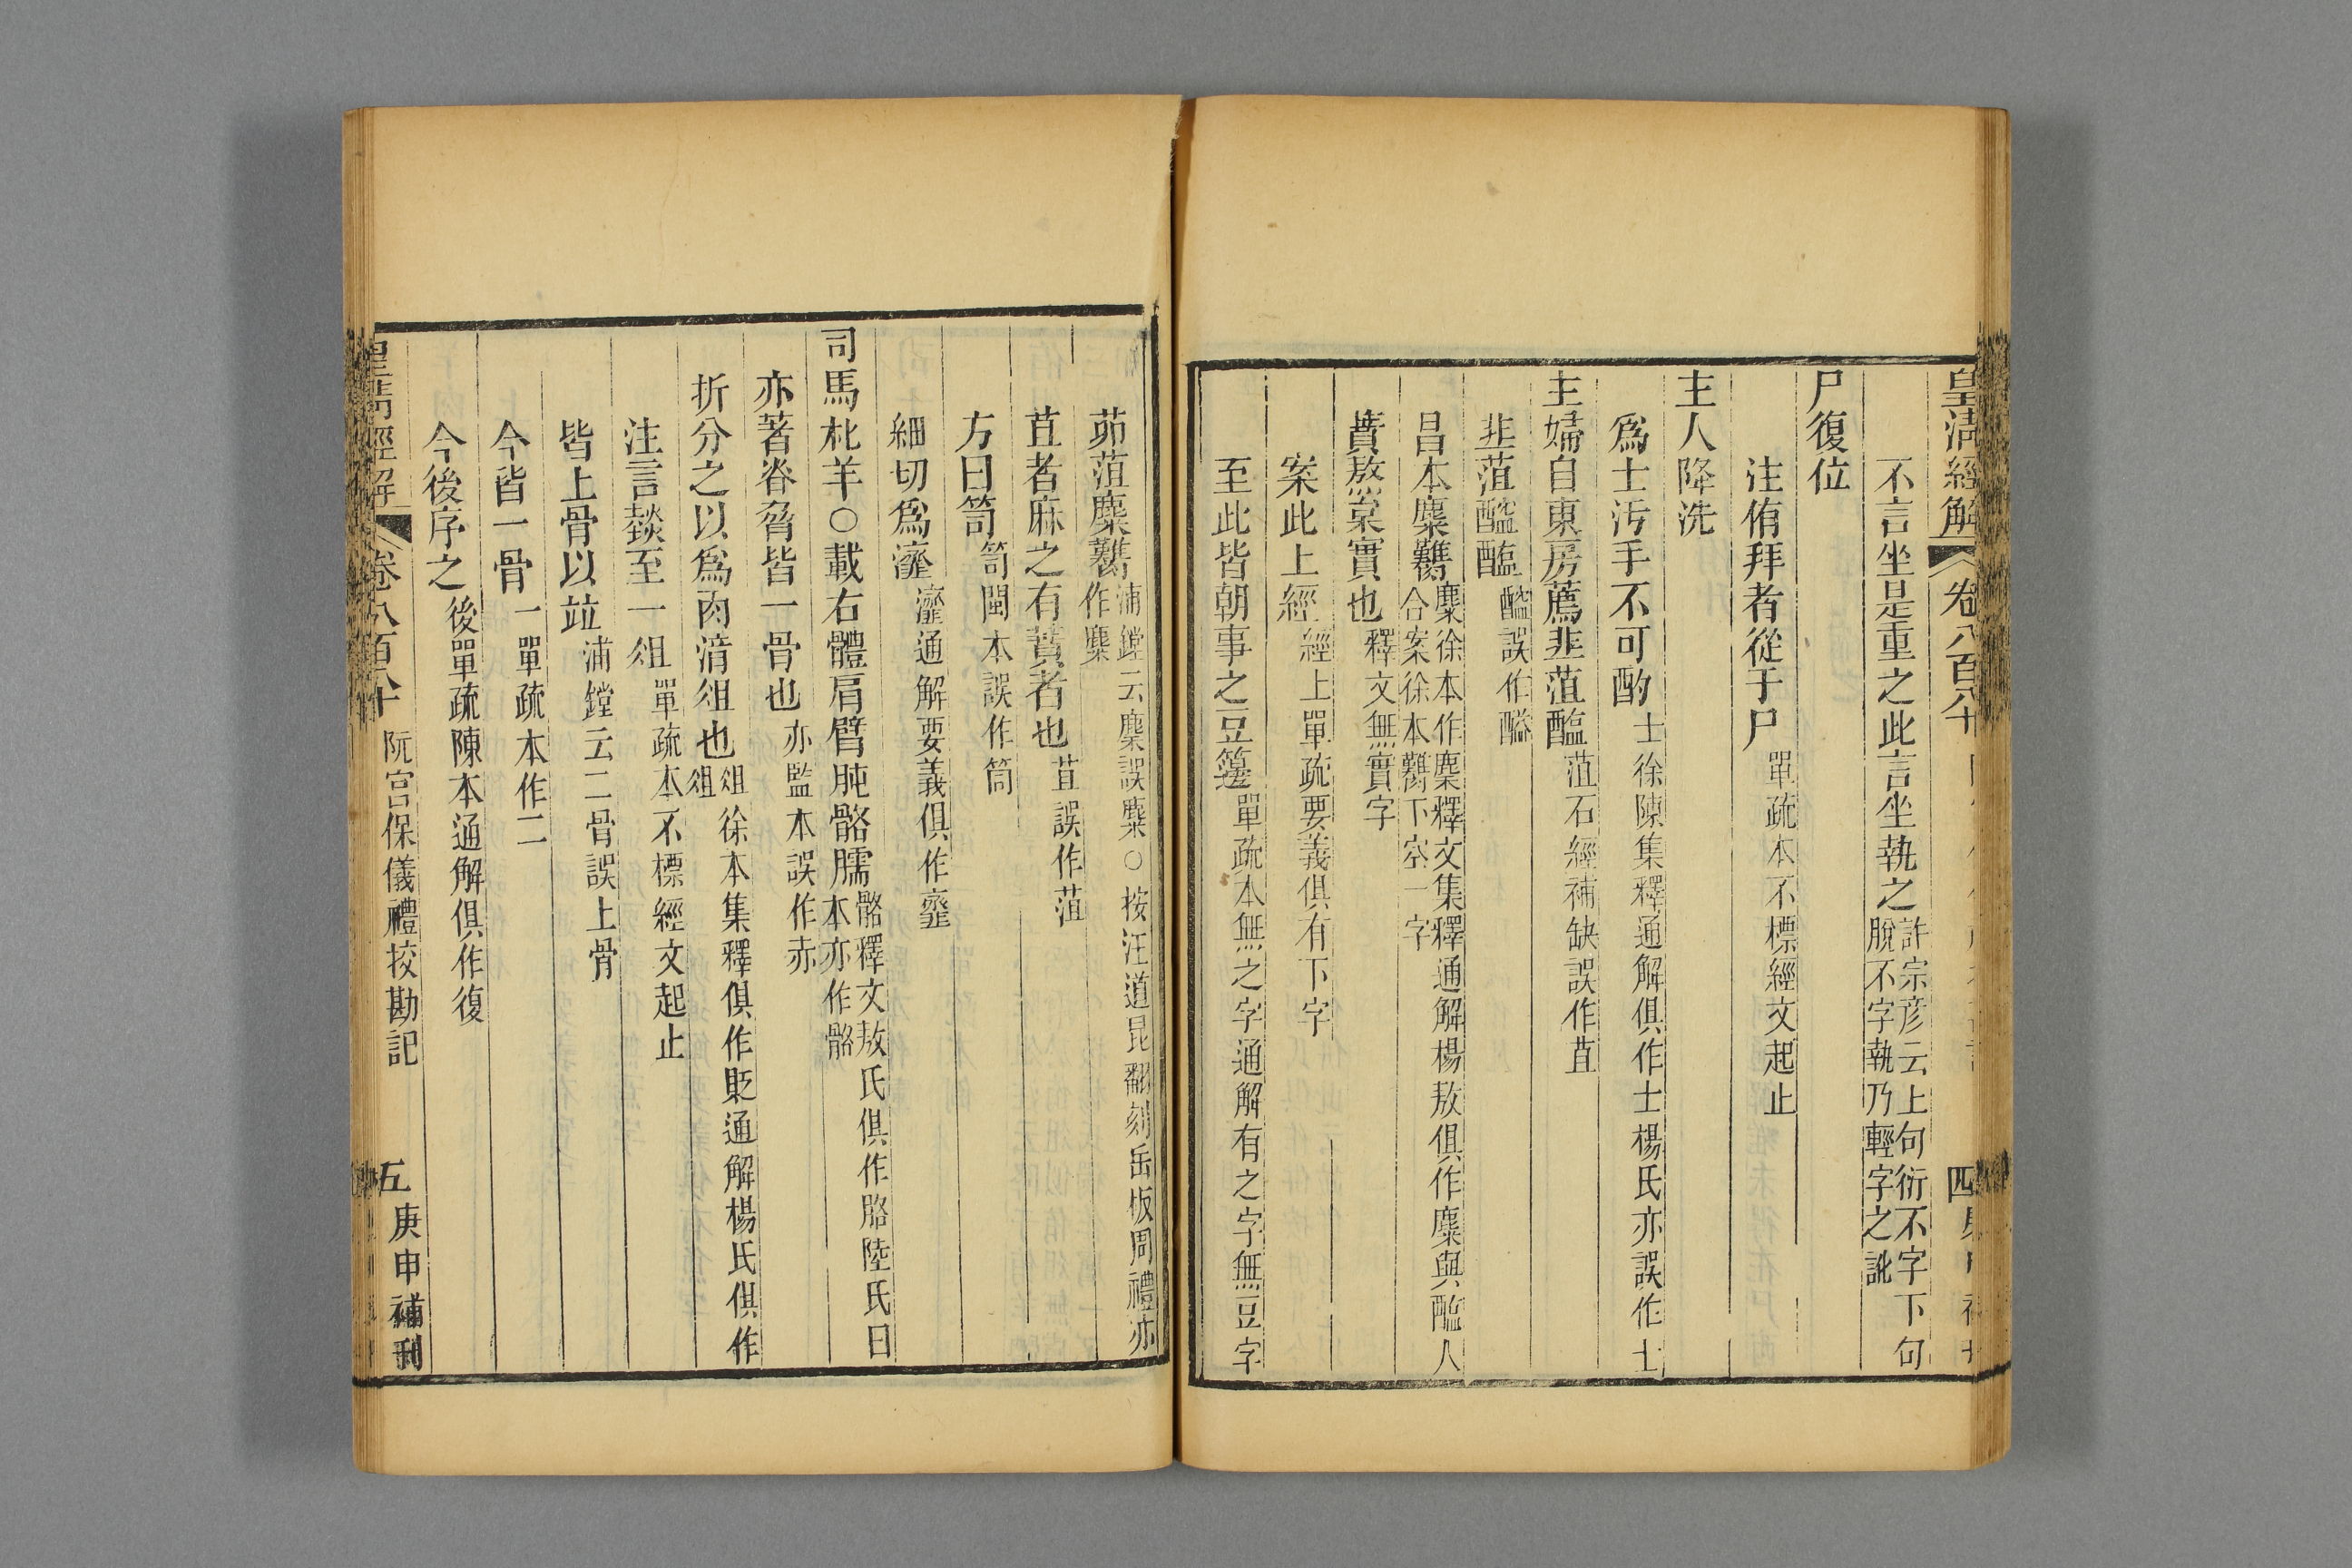 皇清經解 卷八百八十 四
不言坐是重之此言坐執之許宗彦云上句衍不字下句脫不字執乃輕字之訛
尸復位
注侑拜者從于尸單疏本不標經文起止
主人降洗
爲士汚手不可酌士徐陳集釋通解俱作土楊氏亦誤作士
主婦自東房薦韭菹醢菹石經補缺誤作苴
韭菹醓醢醓誤作醯
昌本麋臡麋徐本作麇釋文集釋通解楊敖俱作麋與醢人合案徐本臡下空一字
蕡熬枲實也釋文無實字
案此上經經上單疏要義俱有下字
至此皆朝事之豆籩單疏本無之字通解有之字無豆字
茆菹麇臡浦鏜云麇誤麋○按汪道昆翻刻岳板周禮亦作麋
苴者麻之有蕡者也苴誤作菹
方曰笥笥閩本誤作筒
細切爲虀虀通解要義俱作齏
司馬朼羊○載右體肩臂肫骼臑骼釋文敖氏俱作胳陸氏曰本亦作骼
亦著脊脅皆一骨也亦監本誤作赤
折分之以爲肉湆俎也俎徐本集釋俱作貶通解楊氏俱作俎
注言燅至一俎單疏本不標經文起止
皆上骨以竝浦鏜云二骨誤上骨
今皆一骨一單疏本作二
今後序之後單疏陳本通解俱作復
皇清經解 卷八百八十 阮宮保儀禮挍勘記 五 庚申補刊